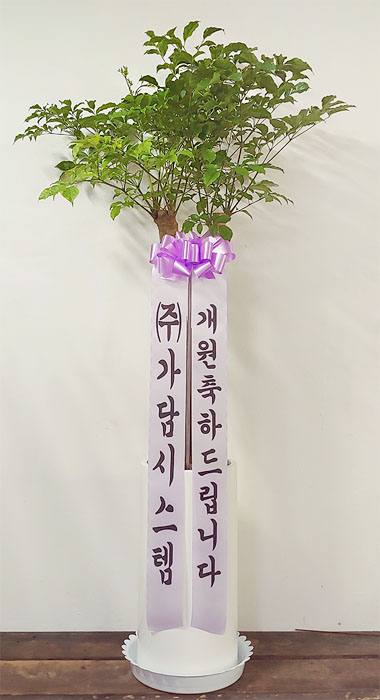 ㈜가담시스템
개원축하드립니다